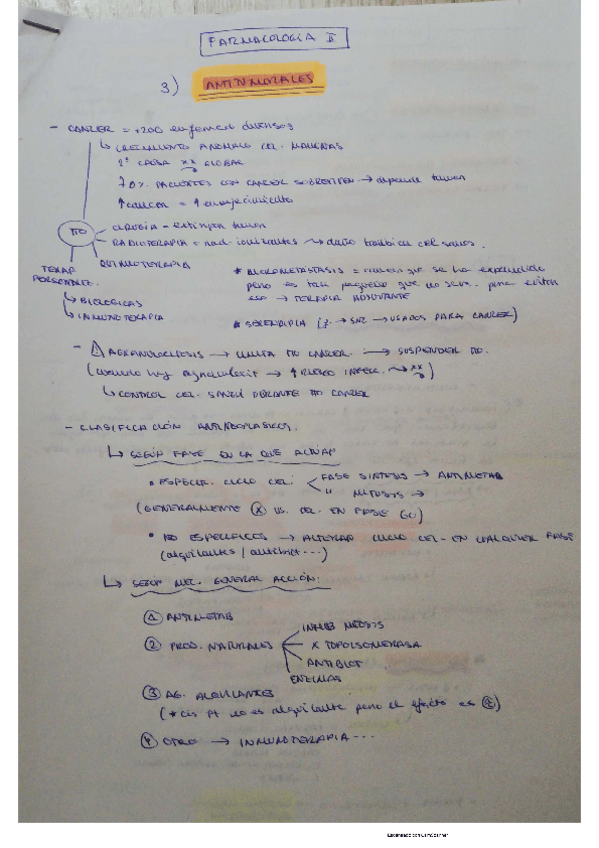 FARMACOLOGIA II
3) ANTITUMORALES
- CANCER = +200 enfermed diversas
↳ CRECIMIENTO ANOMALO CEL. MALIGNAS
2ª CAUSA xx GLOBAR
70% PACIENTES CON CANCER SOBREVIVEN → depende tumor
↑cancer = ↑ envejecimiento
TTO
CIRUGIA - extirpar tumor
RADIOTERAPIA = rad. ionizantes → daño tambien cel sanas.
QUIMIOTERAPIA
TERAP
PERSONALIZ.
↳ BIOLOGICAS
↳ INMUNOTERAPIA
* MICROMETASTASIS = tumor que se ha expandido
pero es tan pequeño que no se ve. para evitar
eso → TERAPIA ADYUVANTE
* SERENDIPIA ( → → USADOS PARA CANCER)
- ⚠ AGRANULOCITOSIS → LIMITA TTO CANCER. → SUSPENDER TTO.
(cuando hay agranulocit → ↑ RIESGO INFECC. → xx)
↳ CONTROL CEL. SANGUÍ DURANTE TTO CANCER
- CLASIFICACIÓN ANTINEOPLASICOS.
↳ SEGÚN FASE EN LA QUE ACTÚAN
• ESPECIF. CICLO CEL: FASE SINTESIS → ANTIMETAB
" MITOSIS →
(GENERALMENTE ⓧ VS. CEL. EN FASE G0)
• NO ESPECIFICOS → ALTERAN CICLO CEL. EN CUALQUIER FASE
(alquilantes / antibiót...)
↳ SEGÚN MEC. GENERAL ACCIÓN:
① ANTIMETAB
② PROD. NATURALES
INHIB MITOSIS
X TOPOISOMERASA
ANTIBIOT
ENZIMAS
③ AG. ALQUILANTES
(* cis Pt no es alquilante pero el efecto es )
④ OTRO → INMUNOTERAPIA...
Escaneado con CamScanner